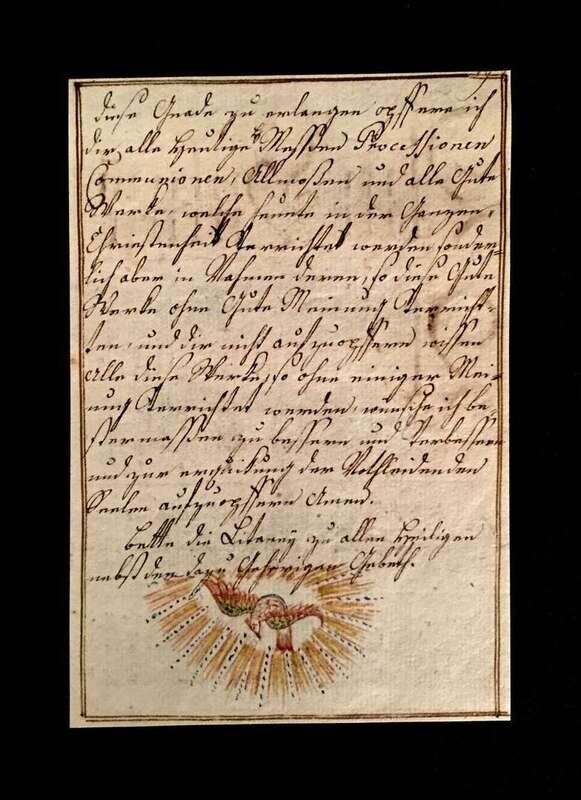 diese Gnade zu erlangen opffere ich
dir alle Heylige Messen Processionen
Communionen, Allmoßen und alle Gute
Werke, welche heunte in der Ganzen
Christenheit Verrichtet werden sonder-
lich aber in Nahmen deren, so diese Gute
Werke ohne Gute Meinung Verrich-
ten, und dir nicht aufzuopffern wissen
Alle diese Werke, so ohne einiger Mei-
nung Verrichtet werden, wünsche ich be-
stermassen zu bessern und Verbessern
und zur erquikung der Nothleidenden
Seelen aufzuopffern Amen.
Bette die Litaney zu allen Heiligen
nebst den darzu Gehörigen Gebeth.